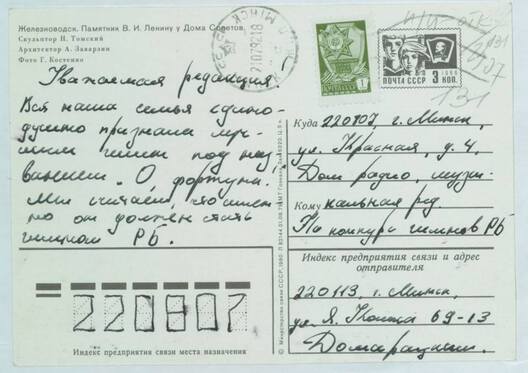 Железноводск. Памятник В. И. Ленину у Дома Советов
Скульптор Н. Томский
Архитектор А. Заварзин
Фото Г. Костенко
Уважаемая редакция!
Вся наша семья едино-
душно признала луч-
шим гимн под наз-
ванием „О, фортуна".
Мы считаем, что имен-
но он должен стать
гимном РБ.
МИНСК
ПОЧТА СССР
3 коп.
131
Куда 220807 г. Минск,
ул. Красная, д. 4,
Дом радио, музы-
Кому кальная ред.
На конкурс гимнов РБ
Индекс предприятия связи и адрес
отправителя
220113, г. Минск,
ул. Я. Коласа 69-13
220807
Индекс предприятия связи места назначения
© Министерство связи СССР, 1990